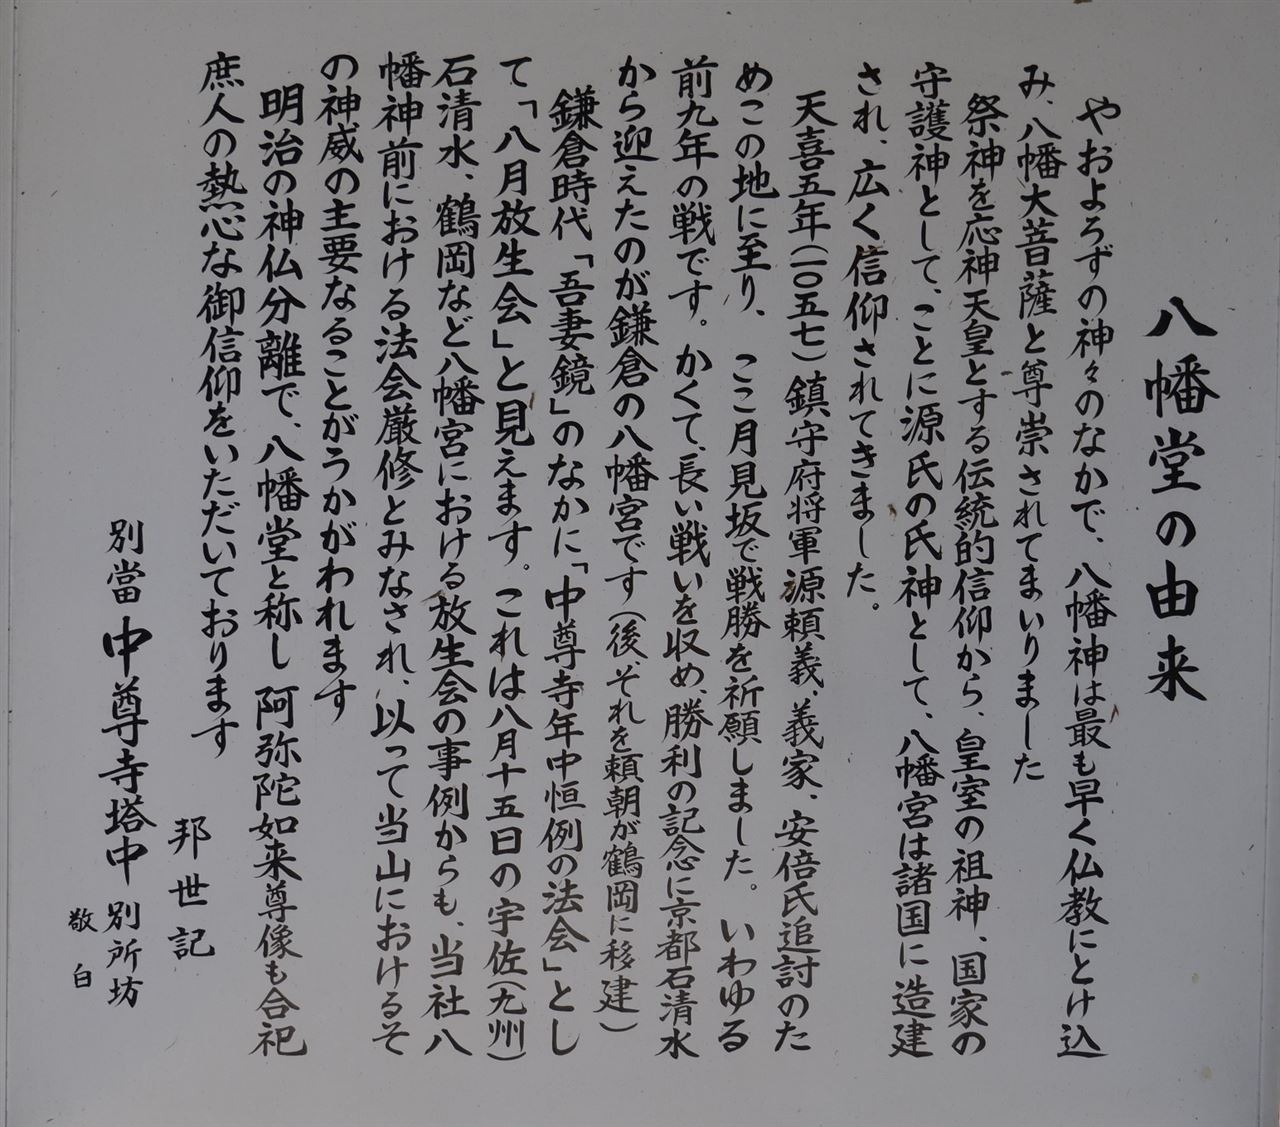 八幡堂の由来
やおよろずの神々のなかで、八幡神は最も早く仏教にとけ込
み、八幡大菩薩と尊崇されてまいりました
祭神を応神天皇とする伝統的信仰から、皇室の祖神、国家の
守護神として、ことに源氏の氏神として、八幡宮は諸国に造建
され、広く信仰されてきました。
天喜五年(一〇五七)鎮守府将軍源頼義、義家、安倍氏追討のた
めこの地に至り、ここ月見坂で戦勝を祈願しました。いわゆる
前九年の戦です。かくて、長い戦いを収め、勝利の記念に京都石清水
から迎えたのが鎌倉の八幡宮です(後、それを頼朝が鶴岡に移建)
鎌倉時代「吾妻鏡」のなかに「中尊寺年中恒例の法会」とし
て「八月放生会」と見えます。これは八月十五日の宇佐(九州)
石清水、鶴岡など八幡宮における放生会の事例からも、当社八
幡神前における法会厳修とみなされ、以って当山におけるそ
の神威の主要なることがうかがわれます
明治の神仏分離で、八幡堂と称し阿弥陀如来尊像も合祀
庶人の熱心な御信仰をいただいております
邦世記
別當 中尊寺塔中 別所坊
敬白